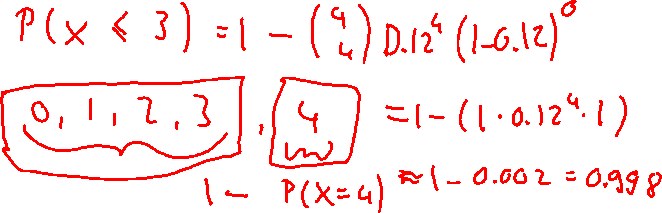 P(X ≤ 3) = 1 - (4 4) 0.12⁴ (1-0.12)⁰
0, 1, 2, 3, 4 = 1 - (1 · 0.12⁴ · 1)
1 - P(X=4) ≈ 1 - 0.002 = 0.998